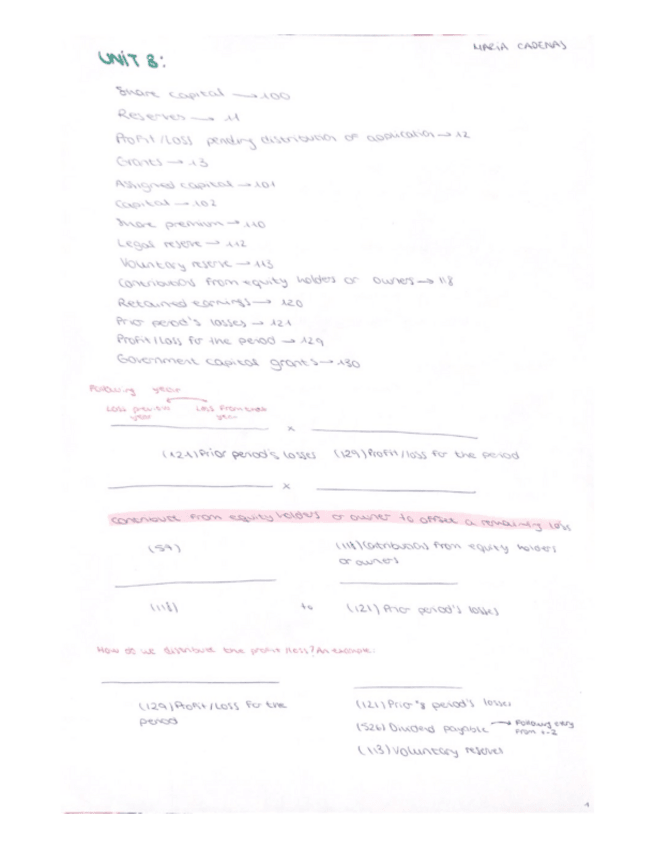 MARIA CADENAS
UNIT 8:
Share capital → 100
Reserves → 11
Profit/Loss pending distribution or application → 12
Grants → 13
Assigned capital → 101
Capital → 102
Share premium → 110
Legal reserve → 112
Voluntary reserve → 113
Contributions from equity holders or owners → 118
Retained earnings → 120
Prior period's losses → 121
Profit/Loss for the period → 129
Government capital grants → 130
Following year
Loss previous year
Loss from each year
x
(121) Prior period's losses (129) Profit/loss for the period
x
contribute from equity holders or owner to offset a remaining loss
(57) (118) Contributions from equity holders
or owners
(118) to (121) Prior period's losses
How do we distribute the profit/less? An example:
(129) Profit/Loss for the (121) Prior's period's losses
period (526) Dividend payable → Following
from 1-2
(113) Voluntary reserves
1